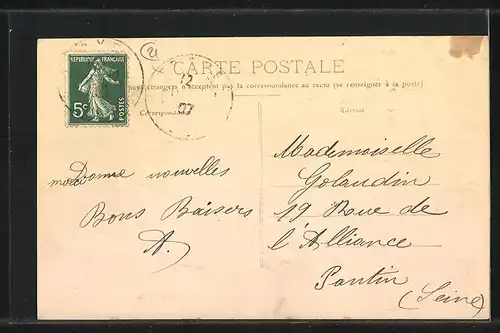 CARTE POSTALE
RÉPUBLIQUE FRANÇAISE
5c
POSTES
pays étrangers n'acceptent pas la correspondance au recto (se renseigner à la poste)
Correspondance
Adresse
12
07
21
Donne nouvelles
Bons Baisers
A.
Mademoiselle
Golaudin
19 Roue de
l'Alliance
Pantin
(Seine)